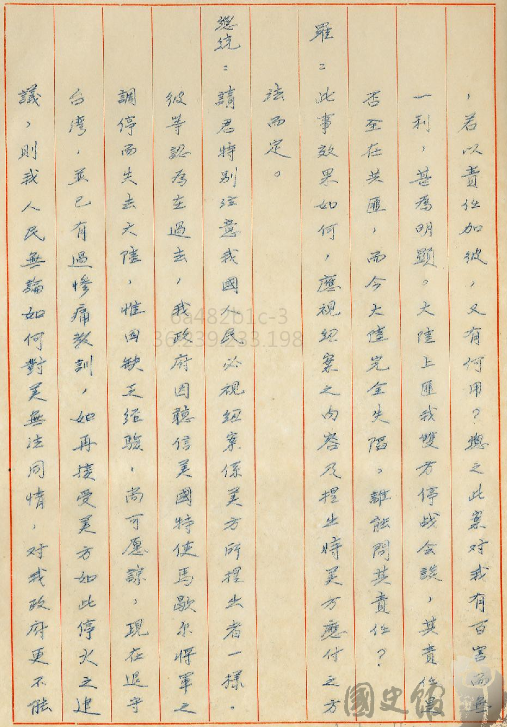 ，若以責任加彼，又有何用？總之此案對我有百害而無
一利，甚為明顯。大陸上匪我雙方停战会談，其責任
否全在共匪，而今大陸完全失陷。誰能問其責任？
羅：此事效果如何，應視紐案之內容及提出時美方應付之方
法而定。
總統：請君特別注意我國人民必視紐案係美方所提出者一樣。
彼等認為在過去，我政府因聽信美國特使馬歇尔將軍之
調停而失去大陸，惟因缺乏經驗，尚可愿諒，現在退守
台灣，並已有過慘痛教訓，如再接受美方如此停火之建
議，則我人民無論如何對美無法同情，对我政府更不能
6a482b1c-3
國史館